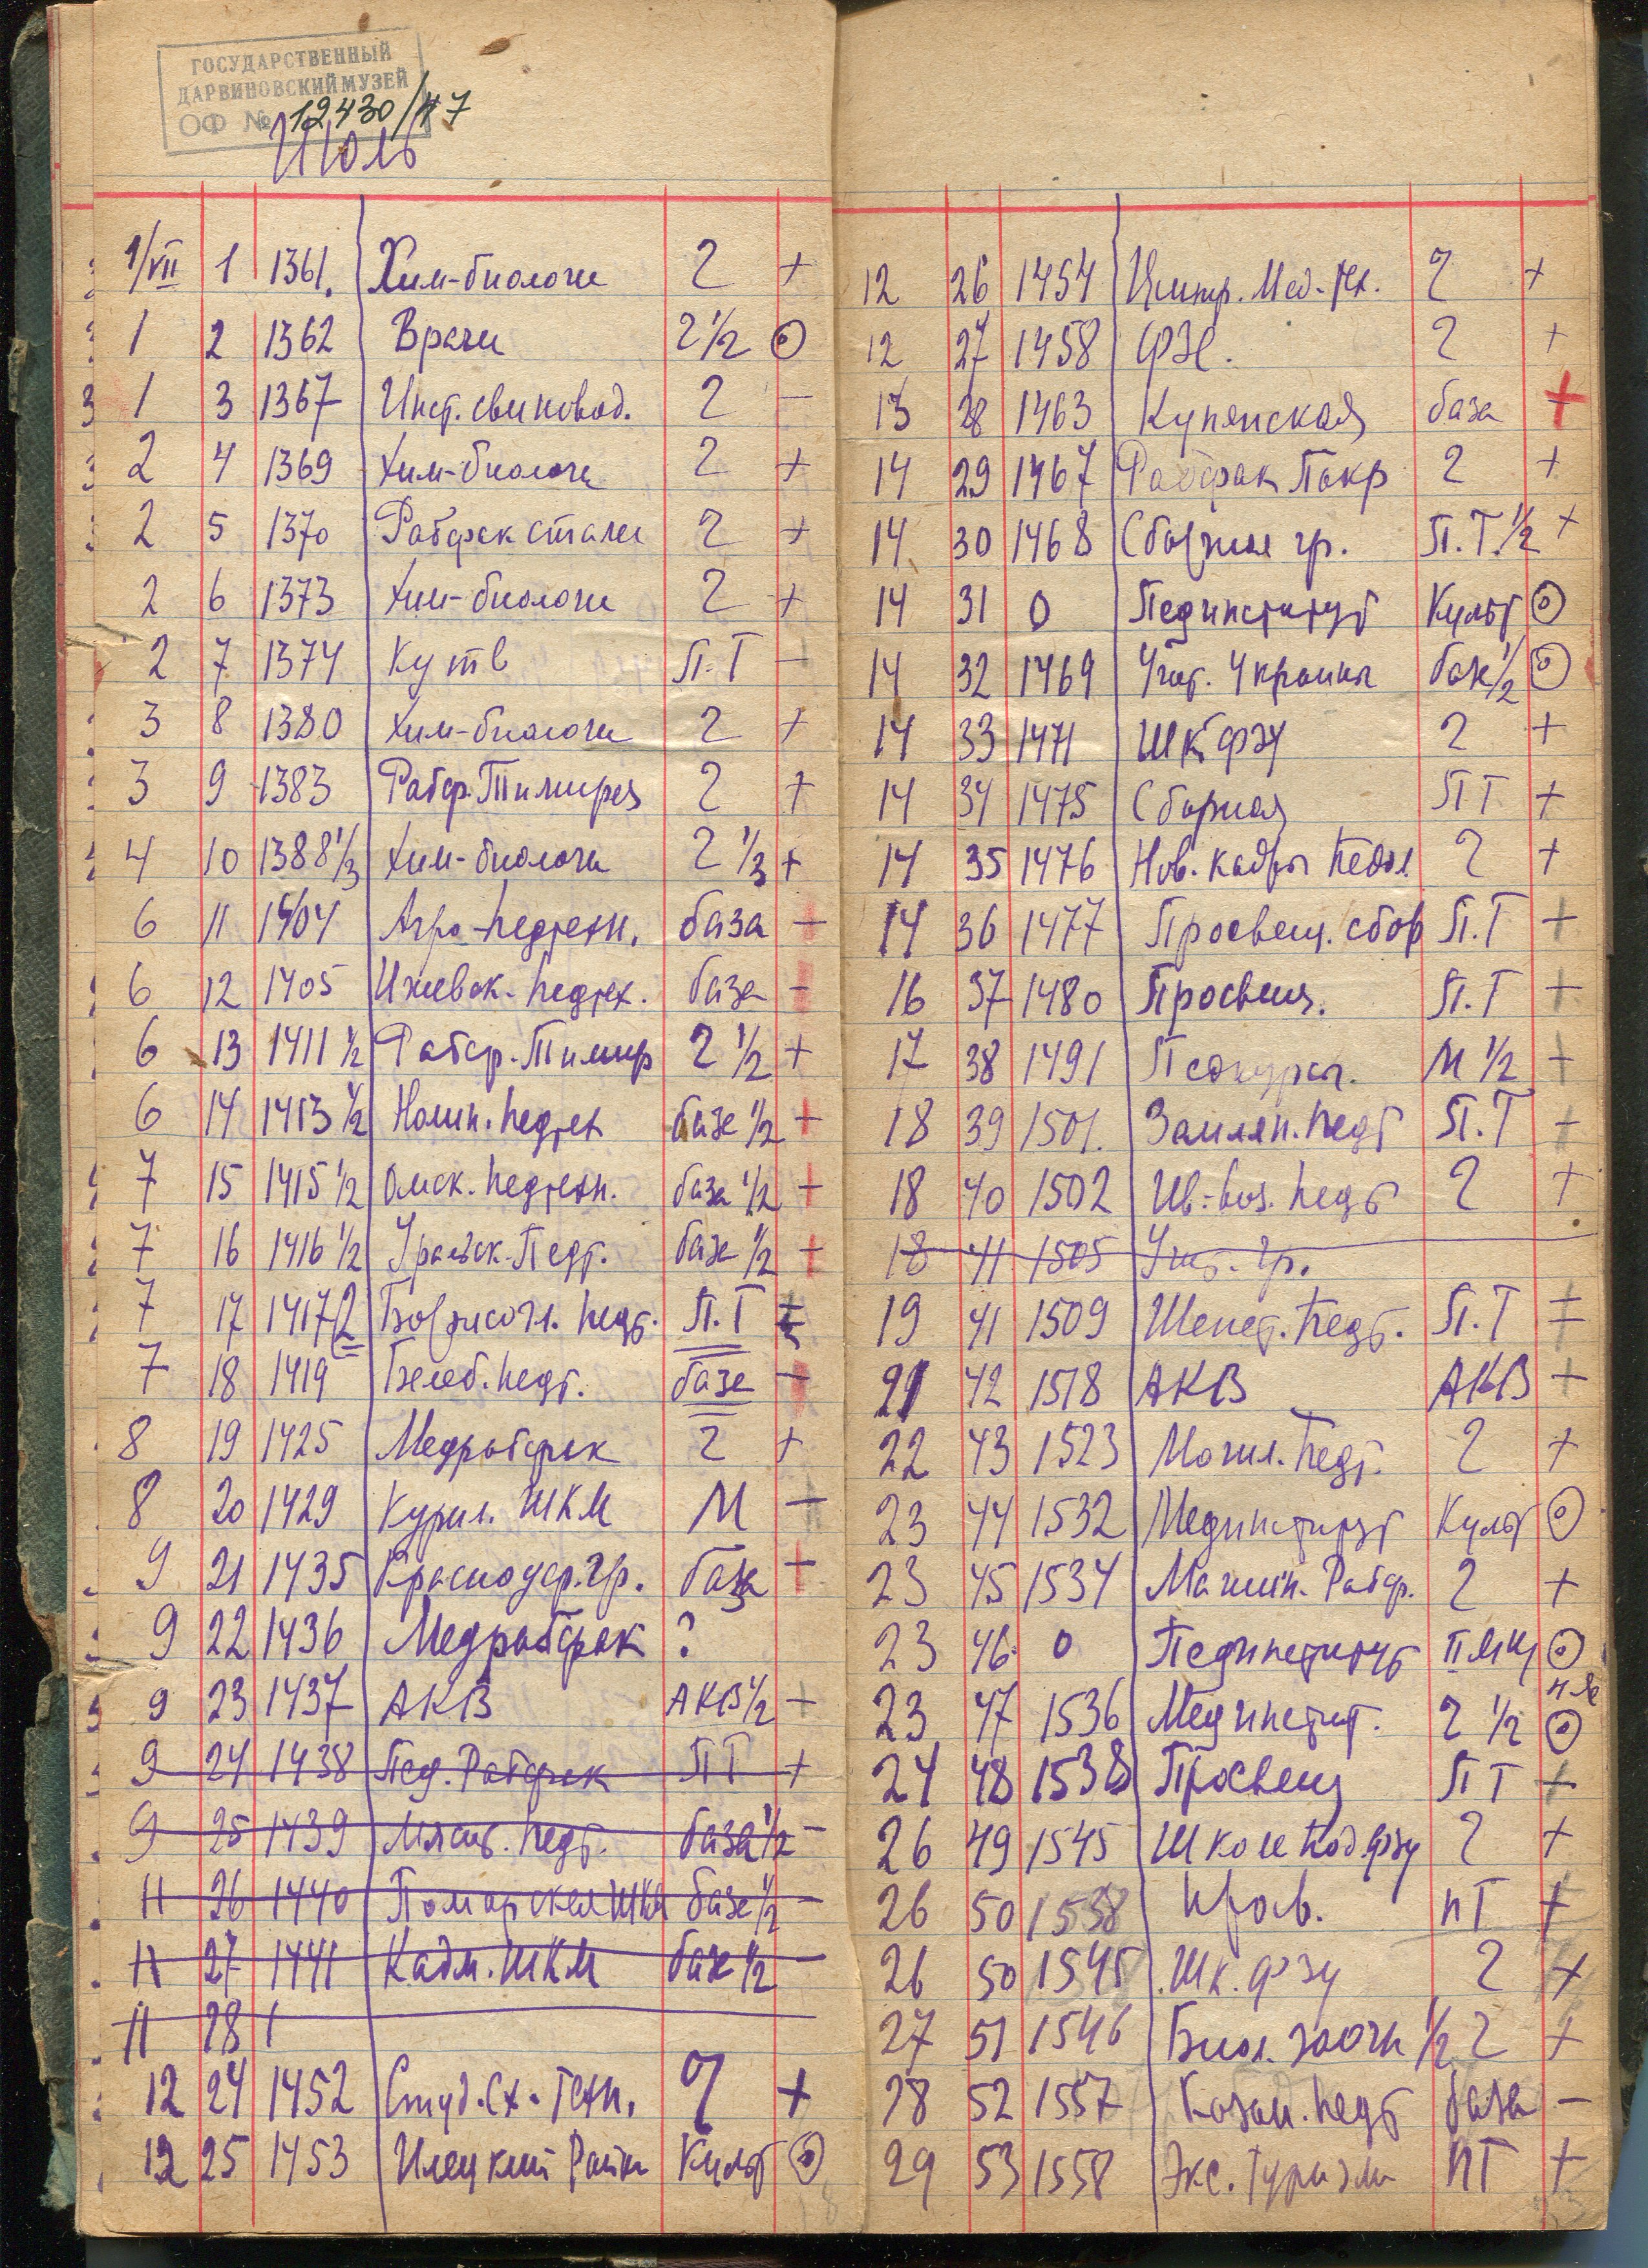 ГОСУДАРСТВЕННЫЙ
ДАРВИНОВСКИЙ МУЗЕЙ
ОФ № 12430/47
Июль
1/VII 1 1361. Хим-биологи 2 +
1 2 1362 Врачи 2 1/2 ⊙
1 3 1367 Инст. свиновод. 2 -
2 4 1369 Хим-биологи 2 +
2 5 1370 Рабфак стали 2 +
2 6 1373 Хим-биологи 2 +
2 7 1374 Кутв П.Т -
3 8 1380 Хим-биологи 2 +
3 9 1383 Рабф. Тимиряз 2 +
4 10 1388 1/3 Хим-биологи 2 1/3 +
6 11 1404 Агро-педтехн. база -
6 12 1405 Ижевск. педтех. база -
6 13 1411 1/2 Рабфр. Тимир 2 1/2 +
6 14 1413 1/2 педтех база 1/2 +
7 15 1415 1/2 Омск. педтехн. база 1/2 +
7 16 1416 1/2 Уральск. Педт. база 1/2 +
7 17 1417 1/2 Борисогл. педт. П.Т
7 18 1419 Белеб. педт. база -
8 19 1425 Медрабфак 2 +
8 20 1429 ШКМ М -
9 21 1435 Краснодар. гр. база +
9 22 1436 Медрабфак ?
9 23 1437 АКВ АКВ 1/2 +
9 24 1438 Пед. Рабфак ПТ +
9 25 1439 педт. база 1/2 -
11 26 1440 ШКМ база 1/2 -
11 27 1441 Кадм. ШКМ база 1/2
11 28 1
12 24 1452 Студ. Сх. Техн. 2 +
12 25 1453 Илецкий Культ ⊙
12 26 1454 Центр. Мед. 2 +
12 27 1458 2 +
13 28 1463 Купянская база +
14 29 1467 Рабфак Покр 2 +
14 30 1468 Сборная гр. П.Т. 1/2 +
14 31 0 Пединститут Культ ⊙
14 32 1469 Учит. Украины 1/2 ⊙
14 33 1471 Шк ФЗУ 2 +
14 34 1475 Сборная ПТ +
14 35 1476 Нов. кадры педол 2 +
14 36 1477 Просвещ. сбор П.Т +
16 37 1480 Просвещ. П.Т +
17 38 1491 Педкурсы. М 1/2 +
18 39 1501. Землян. педт П.Т +
18 40 1502 Ив-воз. педт 2 +
18 41 1505 Учит. гр.
19 41 1509 Шепет. педт. П.Т
21 42 1518 АКВ АКВ +
22 43 1523 Могил. педт. 2 +
23 44 1532 Мединститут Культ ⊙
23 45 1534 Машин. Рабф. 2 +
23 46 0 Пединститут ⊙
23 47 1536 Мединстит. 2 1/2 ⊙
24 48 1538 Просвещ ПТ +
26 49 1545 2 +
26 50 1538 Просв. ПТ +
26 50 1545 Шк. фзу 2 +
27 51 1546 Биол. заочн 1/2 2 +
28 52 1557 Казан. педт база -
29 53 1558 Экс. Туризм ПТ +